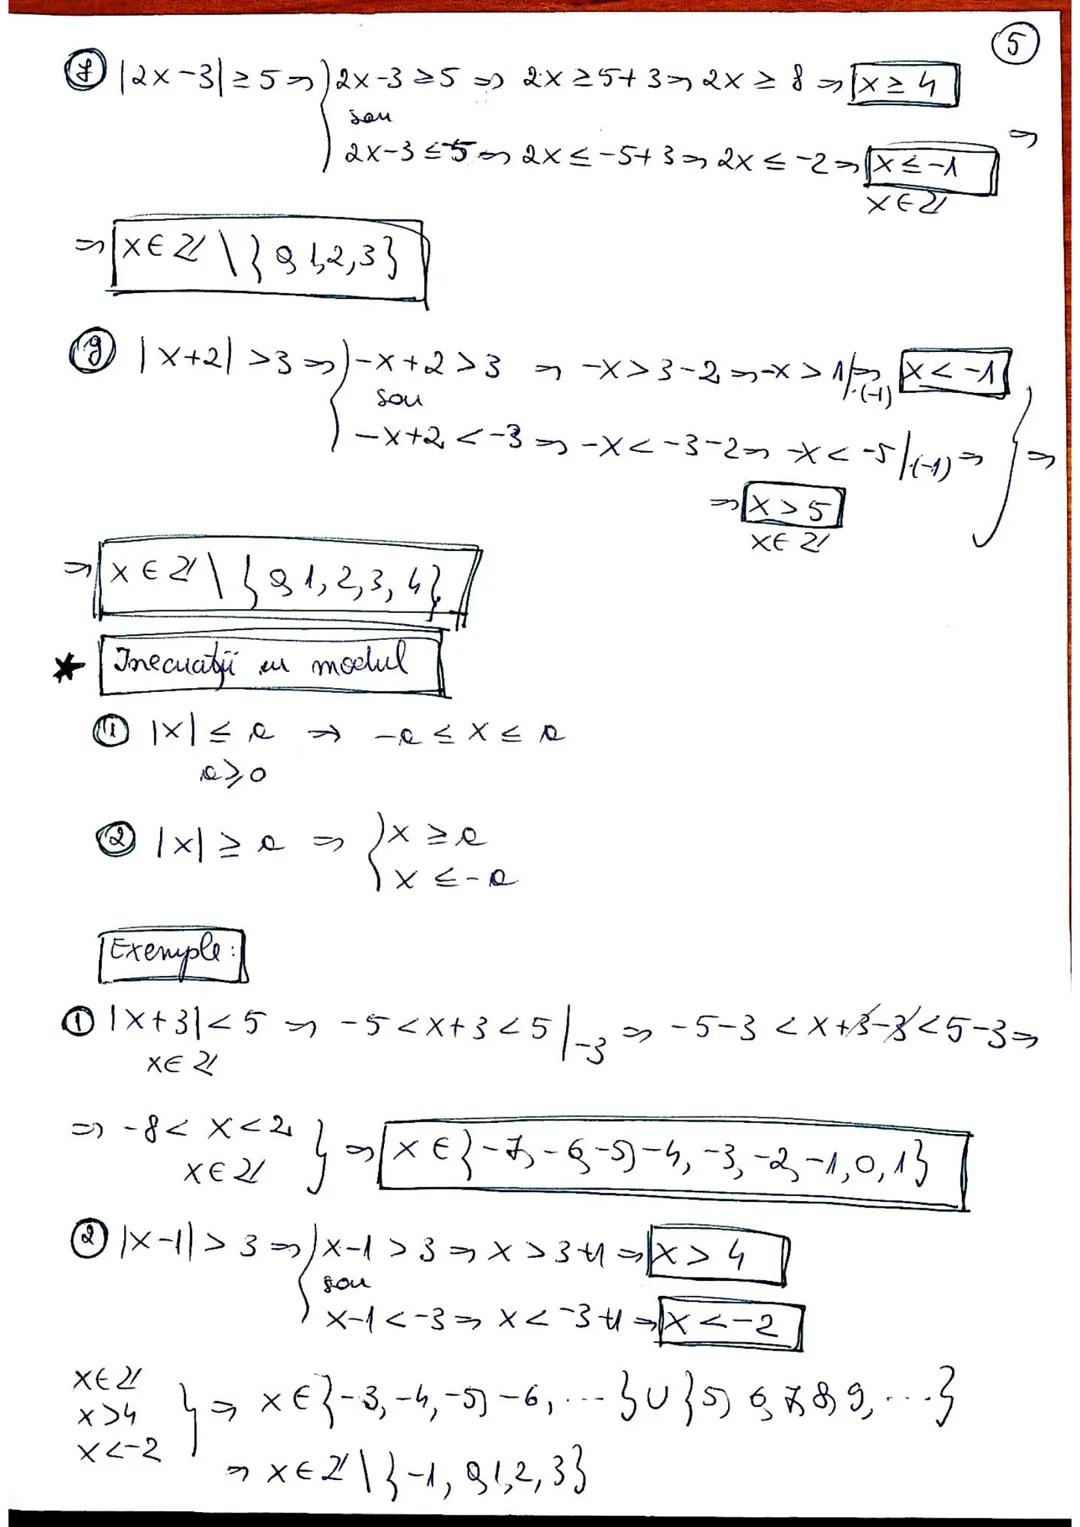 5
f) |2x-3| ≥ 5 ⇒ { 2x-3 ≥ 5 ⇒ 2x ≥ 5+3 ⇒ 2x ≥ 8 ⇒ x ≥ 4
sau
2x-3 ≤ -5 ⇒ 2x ≤ -5+3 ⇒ 2x ≤ -2 ⇒ x ≤ -1 ⇒
x∈ℤ
⇒ x∈ℤ \ {0,1,2,3}
g) |x+2| >3 ⇒ { -x+2 >3 ⇒ -x>3-2 ⇒ -x>1 |·(-1) ⇒ x < -1
sau
-x+2 < -3 ⇒ -x < -3-2 ⇒ -x < -5 |·(-1) ⇒ } ⇒
⇒ x > 5
x∈ℤ
⇒ x∈ℤ \ {0,1,2,3,4}
* Inecuații cu modul
① |x| ≤ a ⇒ -a ≤ x ≤ a
a≥0
② |x| ≥ a ⇒ { x ≥ a
x ≤ -a
Exemple:
① |x+3| < 5 ⇒ -5 < x+3 < 5 |-3 ⇒ -5-3 < x+3-3 < 5-3 ⇒
x∈ℤ
⇒ -8 < x < 2
x∈ℤ } ⇒ x∈{-7,-6,-5,-4,-3,-2,-1,0,1}
② |x-1| > 3 ⇒ { x-1 > 3 ⇒ x > 3+1 ⇒ x > 4
sau
x-1 < -3 ⇒ x < -3+1 ⇒ x < -2
x∈ℤ
x>4 } ⇒ x∈{-3,-4,-5,-6,...}∪{5,6,7,8,9,...}
x<-2
⇒ x∈ℤ \ {-1,0,1,2,3}